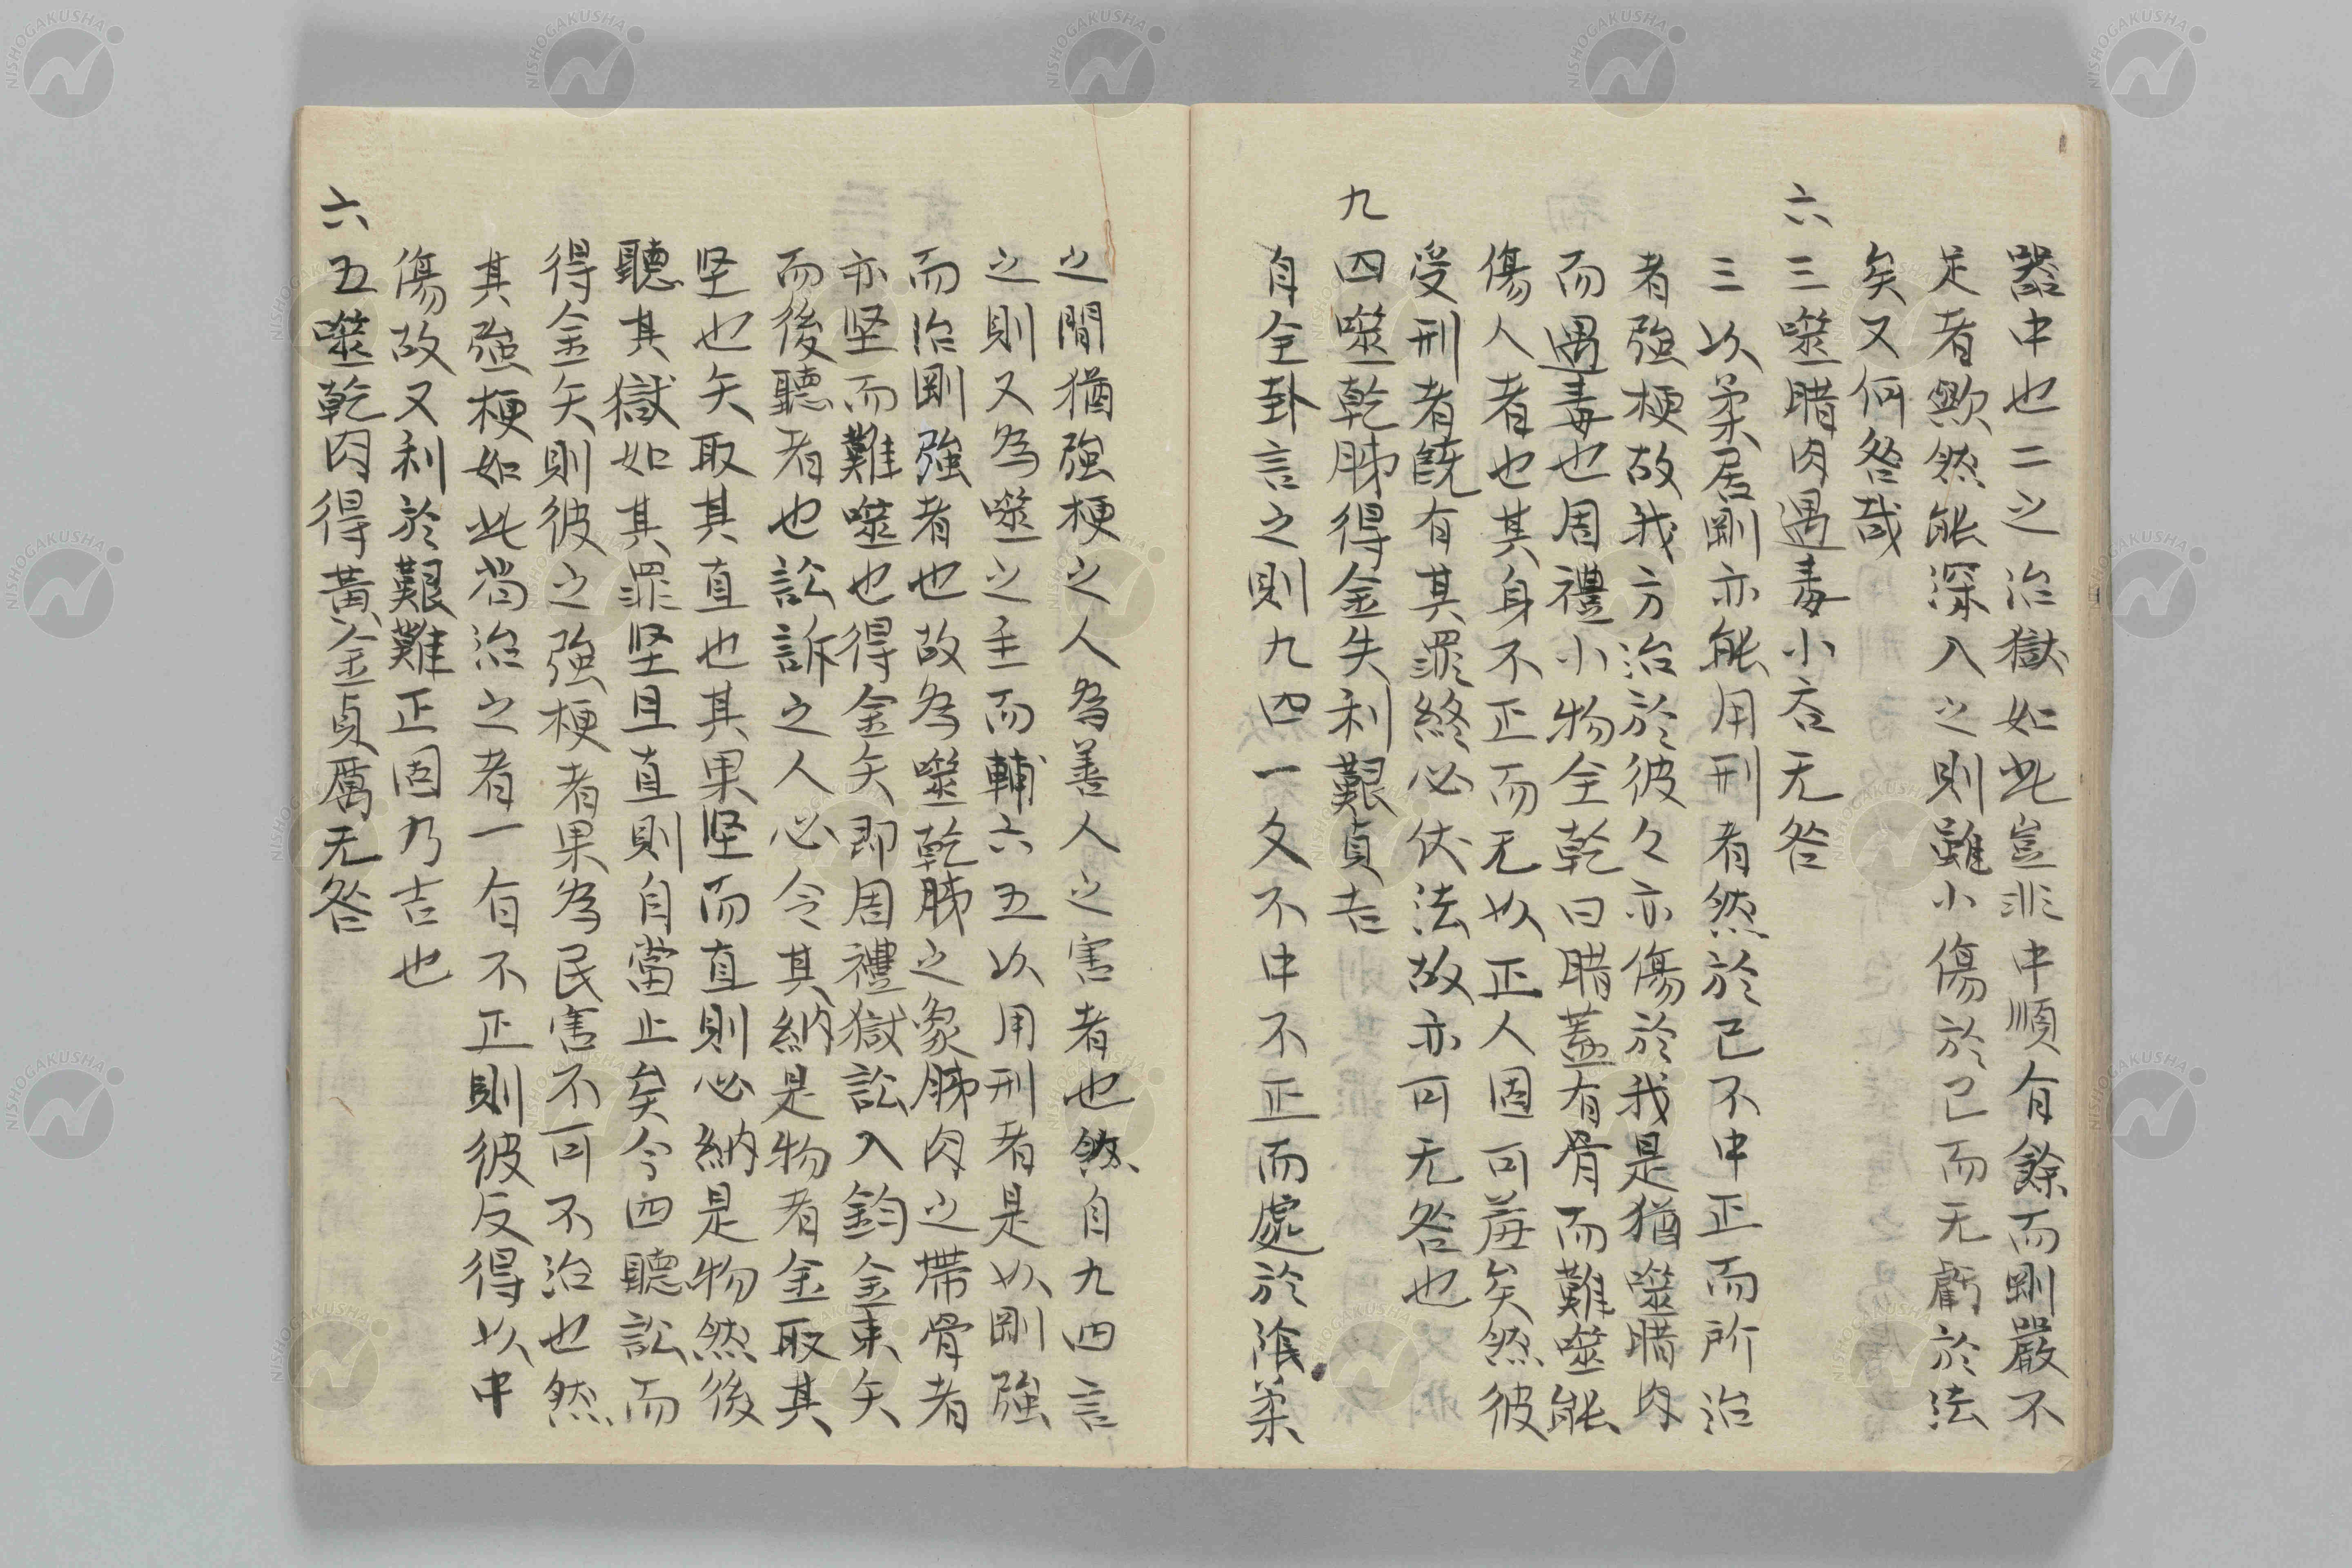 器中也二之治獄如此豈非中順有餘而剛嚴不
足者歟然能深入之則雖小傷於己而无虧於法
矣又何咎哉
六三噬腊肉遇毒小吝无咎
三以柔居剛亦能用刑者然於己不中正而所治
者強梗故我方治於彼々亦傷於我是猶噬腊肉
而遇毒也周禮小物全乾曰腊蓋有骨而難噬能
傷人者也其身不正而无以正人固可羞矣然彼
受刑者既有其罪終必伏法故亦可无咎也
九四噬乾胏得金失利艱貞吉
自全卦言之則九四一爻不中不正而處於陰柔
之間猶強梗之人為善人之害者也然自九四言
之則又為噬之主而輔六五以用刑者是以剛強
而治剛強者也故為噬乾胏之象胏肉之帶骨者
亦坚而難噬也得金矢即周禮獄訟入鈞金束矢
而後聽者也訟訴之人必令其納是物者金取其
坚也矢取其直也其果坚而直則必納是物然後
聽其獄如其罪坚且直則自當止矣今四聽訟而
得金矢則彼之強梗者果為民害不可不治也然
其強梗如此尚治之者一有不正則彼反得以中
傷故又利於艱難正固乃吉也
六五噬乾肉得黃金貞厲无咎
NISHOGAKUSHA